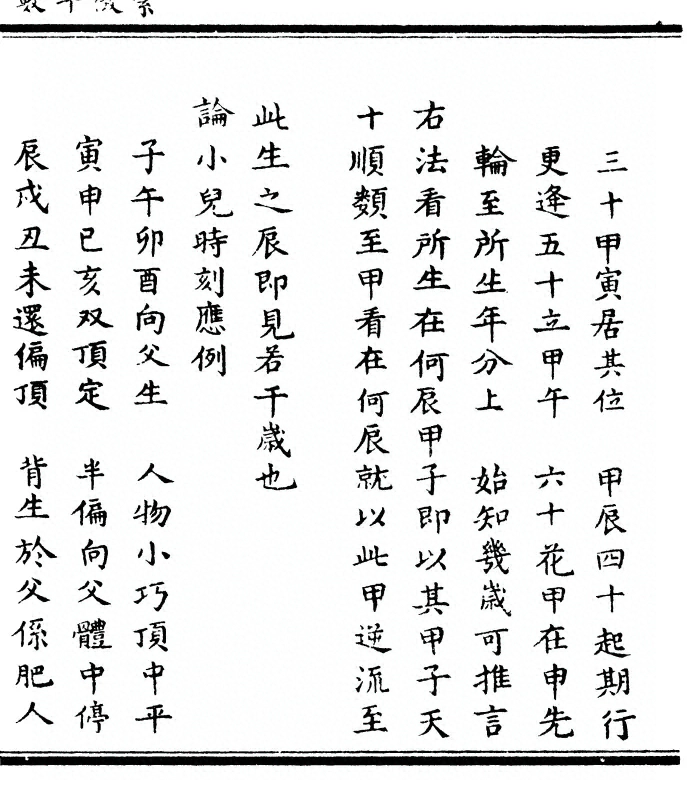 三十甲寅居其位　甲辰四十起期行
更逢五十立甲午　六十花甲在申先
輪至所生年分上　始知幾歲可推言
右法看所生在何辰甲子即以其甲子天
十順數至甲看在何辰就以此甲逆流至
此生之辰即見若干歲也
論小兒時刻應例
子午卯酉向父生　人物小巧頂中平
寅申巳亥双頂定　半偏向父體中停
辰戌丑未還偏頂　背生於父係肥人